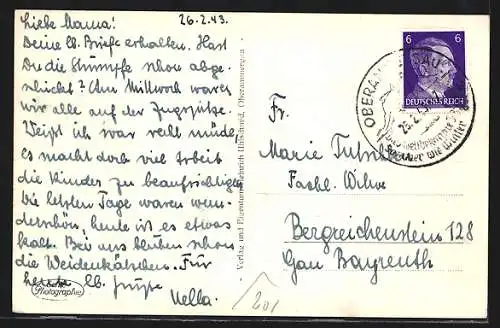 26.2.43.
Liebe Mama!
Deine lb. Briefe erhalten. Hast
Du die Strümpfe schon abge-
schickt? Am Mittwoch waren
wir alle auf der Zugspitze.
Weißt ich war recht müde,
Es macht doch viel Arbeit
die Kinder zu beaufsichtigen
Die letzten Tage waren wun-
derschön, heute ist es etwas
kalt. Bei uns blühen schon
die Weidenkätzchen. Für
heute lb. Grüße
Nella.
Photographie
Verlag und Eigentum Heinrich
Oberammergau
6 6
DEUTSCHES REICH
OBERAMMERGAU
Sommer wie Winter
Fr.
Marie
Fachl. Witwe
Bergreichenstein 128
Gau Bayreuth
201